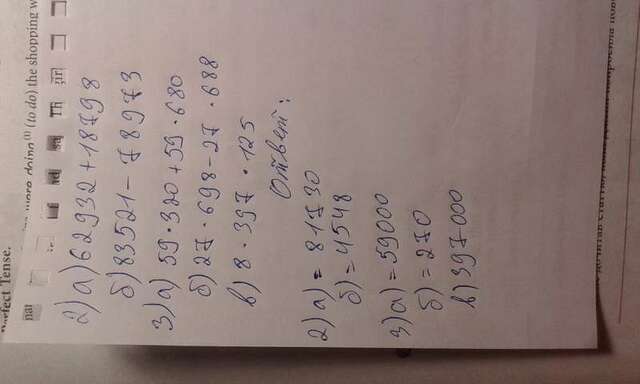 2) а) 62932 + 18798
б) 83521 - 78973
3) а) 59 · 320 + 59 · 680
б) 27 · 698 - 27 · 688
в) 8 · 397 · 125
Ответ:
2) а) = 81730
б) = 4548
3) а) = 59000
б) = 270
в) 397000
doing (to do) the shopping w
erfect Tense.